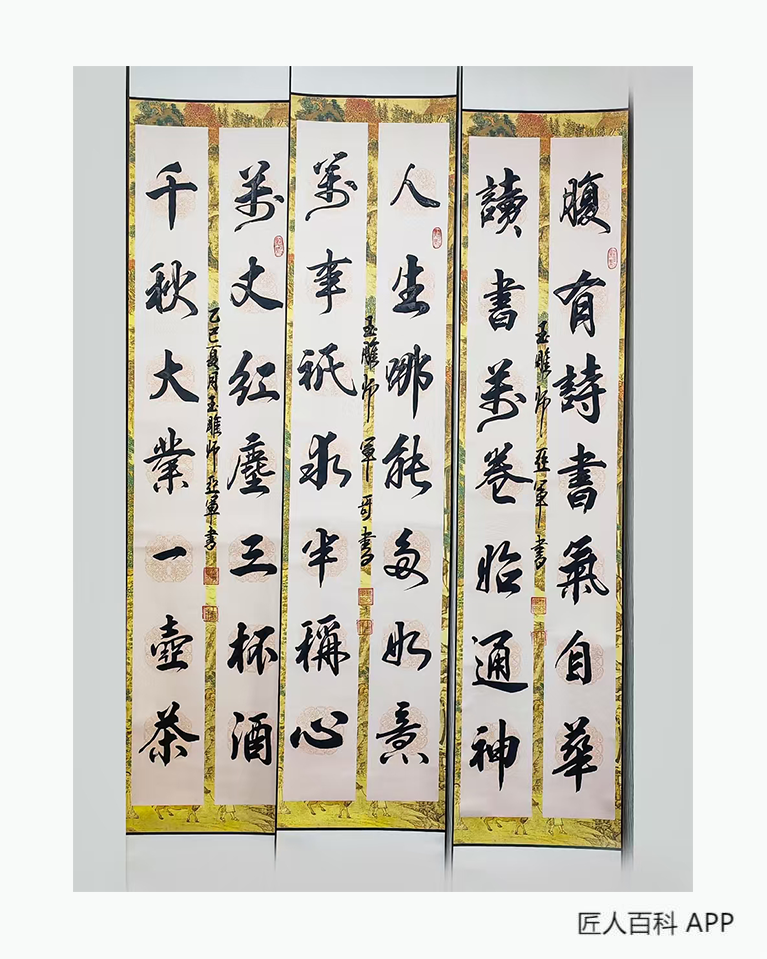 腹有詩書氣自華
讀書萬卷始通神
玉雕师 亞軍書
人生哪能多如意
萬事祇求半稱心
玉雕师 軍哥書
萬丈红塵三杯酒
千秋大業一壺茶
乙巳夏月玉雕师亞軍書
匠人百科 APP